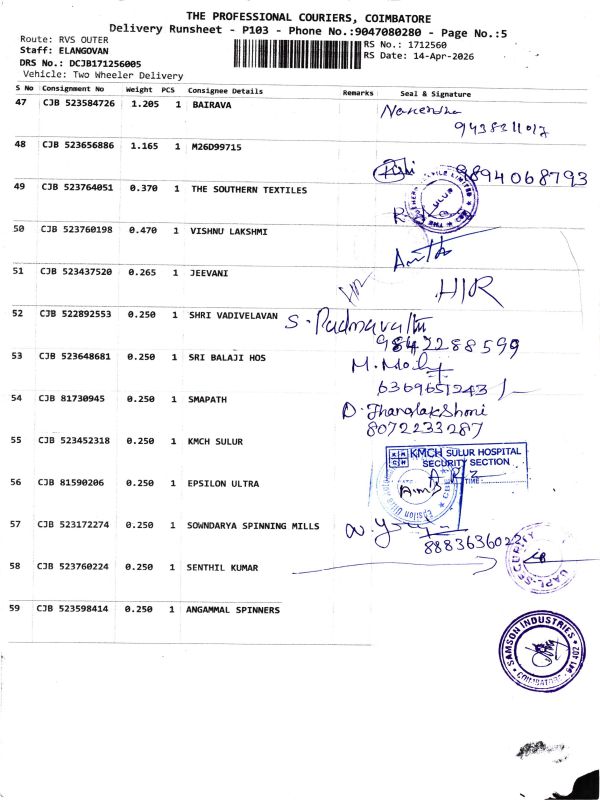 THE PROFESSIONAL COURIERS, COIMBATORE
Delivery Runsheet - P103 - Phone No.:9047080280 - Page No.:5
Route: RVS OUTER
RS No.: 1712560
Staff: ELANGOVAN
RS Date: 14-Apr-2026
DRS No.: DCJB171256005
Vehicle: Two Wheeler Delivery
S No Consignment No Weight PCS Consignee Details Remarks Seal & Signature
47 CJB 523584726 1.205 1 BAIRAVA
Narendha
48 CJB 523656886 1.165 1 M26D99715
9894068793
49 CJB 523764051 0.370 1 THE SOUTHERN TEXTILES
50 CJB 523760198 0.470 1 VISHNU LAKSHMI
51 CJB 523437520 0.265 1 JEEVANI
H/R
H/R
52 CJB 522892553 0.250 1 SHRI VADIVELAVAN
S. Padmavathi
9842288599
53 CJB 523648681 0.250 1 SRI BALAJI HOS
6369651243
54 CJB 81730945 0.250 1 SMAPATH
D. Jhanglakshoni
8072233287
55 CJB 523452318 0.250 1 KMCH SULUR
KMCH SULUR HOSPITAL
SECURITY SECTION
TIME:
56 CJB 81590206 0.250 1 EPSILON ULTRA
Epsilon Ultra
57 CJB 523172274 0.250 1 SOWNDARYA SPINNING MILLS
58 CJB 523760224 0.250 1 SENTHIL KUMAR
UAPL-SECURITY
59 CJB 523598414 0.250 1 ANGAMMAL SPINNERS
SAMSON INDUSTRIES
COIMBATORE - 641 402